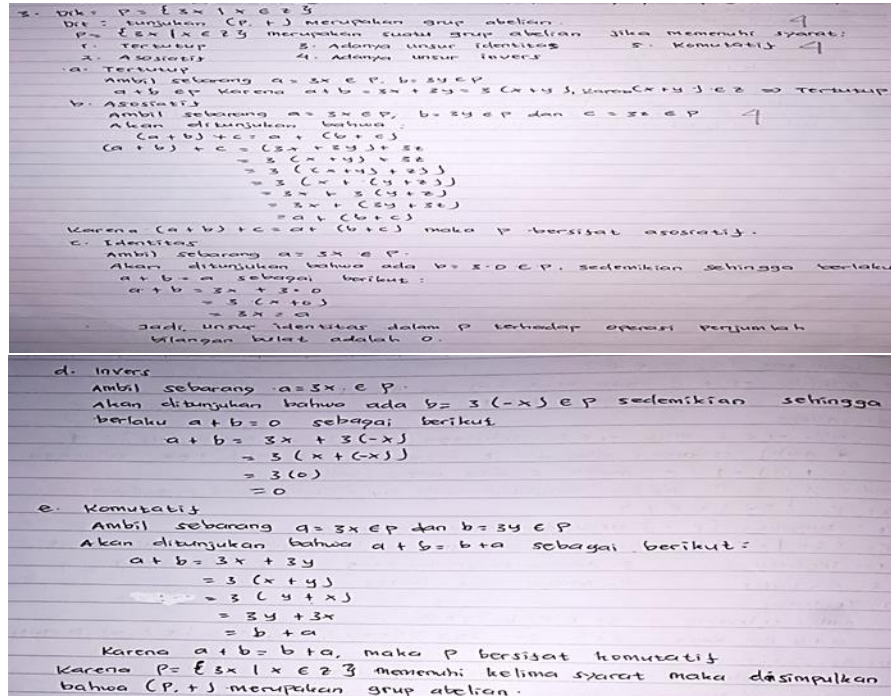 3. Dik: P = {3x | x ∈ Z}
Dit : tunjukan (P, +) merupakan grup abelian. 4
P = {3x | x ∈ Z} merupakan suatu grup abelian jika memenuhi syarat:
1. Tertutup 3. Adanya unsur identitas 5. Komutatif 4
2. Asosiatif 4. Adanya unsur invers
a. Tertutup
Ambil sebarang a = 3x ∈ P, b = 3y ∈ P
a + b ∈ P karena a + b = 3x + 3y = 3(x+y), karena (x+y) ∈ Z => Tertutup
b. Asosiatif
Ambil sebarang a = 3x ∈ P, b = 3y ∈ P dan c = 3z ∈ P 4
Akan ditunjukan bahwa :
(a + b) + c = a + (b + c)
(a + b) + c = (3x + 3y) + 3z
= 3 (x + y) + 3z
= 3 ((x+y) + z)
= 3 (x + (y+z))
= 3x + 3 (y+z)
= 3x + (3y + 3z)
= a + (b+c)
Karena (a+b) + c = a + (b+c) maka P bersifat asosiatif.
c. Identitas
Ambil sebarang a = 3x ∈ P.
Akan ditunjukan bahwa ada b = 3·0 ∈ P, sedemikian sehingga berlaku
a + b = a sebagai berikut :
a + b = 3x + 3·0
= 3 (x+0)
= 3x = a
Jadi, unsur identitas dalam P terhadap operasi penjumlah
bilangan bulat adalah 0.
d. Invers
Ambil sebarang a = 3x ∈ P.
Akan ditunjukan bahwa ada b = 3(-x) ∈ P sedemikian sehingga
berlaku a + b = 0 sebagai berikut
a + b = 3x + 3(-x)
= 3 (x + (-x))
= 3(0)
= 0
e. Komutatif
Ambil sebarang a = 3x ∈ P dan b = 3y ∈ P
Akan ditunjukan bahwa a + b = b + a sebagai berikut :
a + b = 3x + 3y
= 3 (x+y)
= 3 (y+x)
= 3y + 3x
= b + a
Karena a + b = b + a, maka P bersifat komutatif
Karena P = {3x | x ∈ Z} memenuhi kelima syarat maka disimpulkan
bahwa (P, +) merupakan grup abelian.